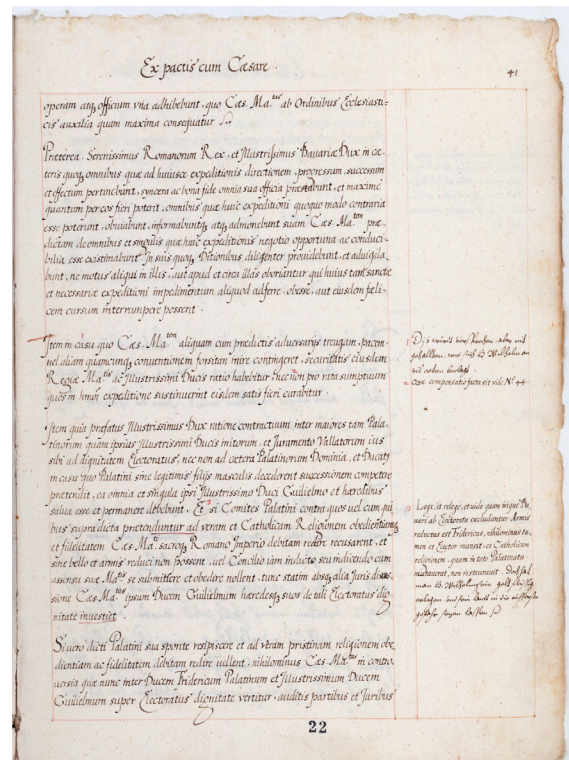 Ex pactis cum Cæsare.
41
operam atq officium vna adhibebunt, quo Cæs. Ma.tas ab Ordinibus Ecclesiasti-
cis auxilia quam maxima consequatur
Præterea, Serenissimus Romanorum Rex, et Illustrissimus Bavariæ Dux in cæ
teris quoq, omnibus quæ ad huiusce expeditionis directionem, progressum, successum
et effectum pertinebunt, syncera ac bona fide omnia sua officia præstabunt, et maximè
quantum per eos fieri poterit, omnibus quæ huic expeditioni quoquo modo contraria
esse poterunt, obviabunt, informabuntq, atq admonebunt suam Cæs. Ma.tem præ
dictam de omnibus et singulis quæ huic expeditionis negotio opportuna ac conduci-
bilia esse existimabunt. In suis quoq Ditionibus diligenter providebunt, et advigila
bunt, ne motus aliqui in illis, aut apud et circa illas oboriantur qui huius tam sanctæ
et necessariæ expeditioni impedimentum aliquod adferre, obesse, aut eiusdem fæli-
cem cursum interrumpere possent.
Item in casu quo Cæs. Ma.tem aliquam cum prædictis adversarijs treugam, pacem
uel aliam quamcunq conventionem forsitan inire contingeret, securitatis eiusdem
Regiæ Ma.tis ac Illustrissimi Ducis ratio habebitur, nec non pro rata sumptuum
quos in hmoi expeditione sustinuerint eisdem satis fieri curabitur
1
2 Quæ compensatio facta sit vide N.o 44
Item quia præfatus Illustrissimus Dux ratione contractuum inter maiores tam Pala-
tinorum quam ipsius Illustrissimi Ducis initorum, et Juramento Vallatorum ius
sibi ad dignitatem Electoratus, nec non ad cætera Palatinorum Dominia, et Ducatus
in casu quo Palatini sine legitimis filijs masculis decederent successionem competere
pretendit, ea omnia et singula ipsi Illustrissimo Duci Guilielmo et hæredibus
salua esse et permanere debebunt. Et si Comites Palatini contra quos uel cum qui
bus supradicta pretenduntur ad veram et Catholicam Religionem obedientiamq
et fidelitatem Cæs. Ma.ti sacroq Romano Imperio debitam redire recusarent, et
sine bello et armis reduci non possent, uel Concilio iam indicto seu indicendo cum
assensu suæ Ma.tis se submittere et obedire nollent, tunc statim absq alla Juris discus
sione Cæs. Ma.tas ipsum Ducem Guilielmum hæredesq suos de tali Electoratus dig
nitate investiet.
3 Lege, et relege, et vide quam inique Ba
uari ab Electoratu excludantur Armis
reductus est Fridericus, nihilominus ta-
men et Elector mansit, et Catholicam
religionem, quam in toto Palatinatu
mutaverat, non instauravit.
Si vero dicti Palatini sua sponte resipiscere et ad veram pristinam religionem obe
dientiam ac fidelitatem debitam redire uellent, nihilominus Cæs. Ma.tas in contro
versia quæ nunc inter Ducem Fridericum Palatinum et Illustrissimum Ducem
Guilielmum super Electoratus dignitate vertitur, auditis partibus et Juribus
22